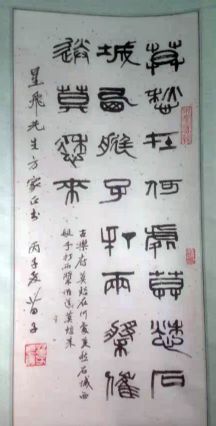 莫愁在何處莫愁石
城西艇子打兩槳催
送莫愁來
古樂府莫愁在何處莫愁石城西
艇子打兩槳催送莫愁來
星飛先生方家正書 丙子 苗子